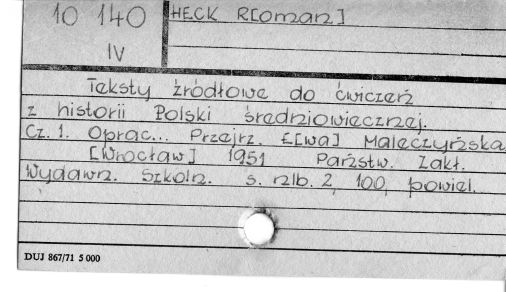 10 140
IV
HECK R[oman]
Teksty źródłowe do ćwiczeń
z historii Polski średniowiecznej.
Cz. 1. Oprac... Przejrz. E[wa] Maleczyńska
[Wrocław] 1951 Państw. Zakł.
Wydawn. Szkoln. s. nlb. 2, 100, powiel.
DUJ 867/71 5 000